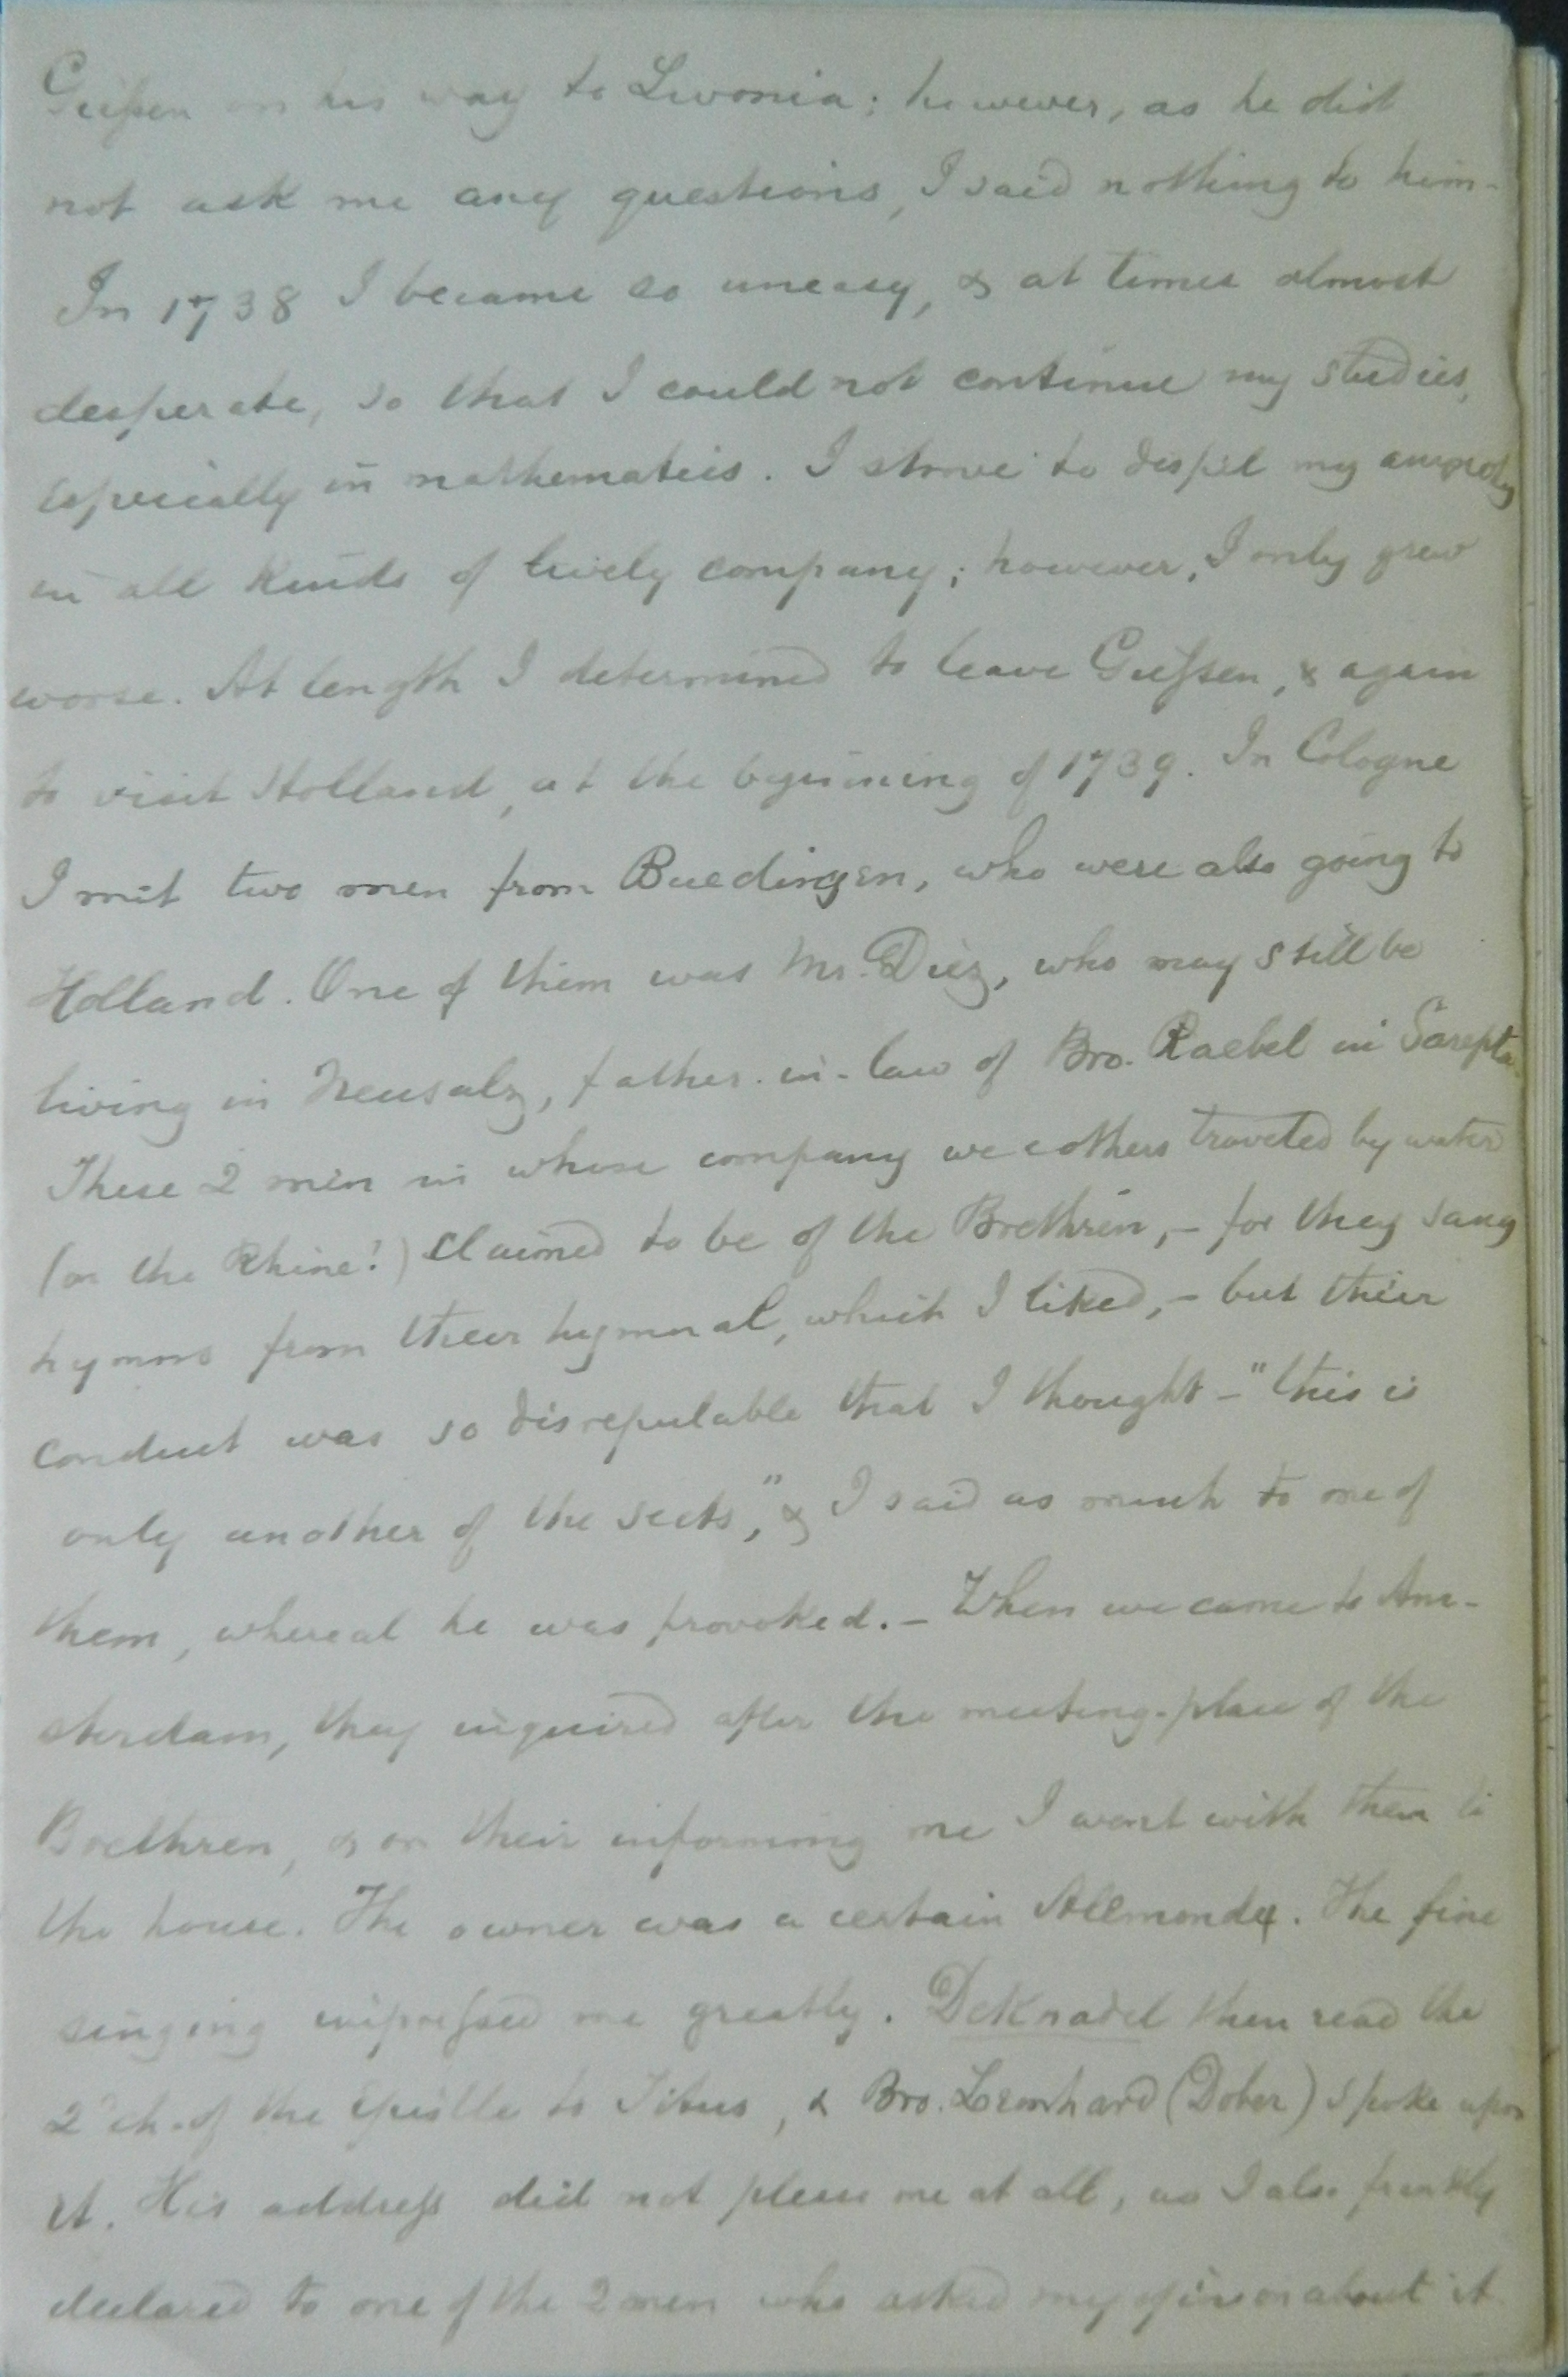 Giessen on his way to Livonia; however, as he did
not ask me any questions, I said nothing to him.
In 1738 I became so uneasy, & at times almost
desperate, so that I could not continue my studies,
especially in mathematics. I strove to dispel my anxiety
in all kinds of lively company; however, I only grew
worse. At length I determined to leave Giessen, & again
to visit Holland, at the beginning of 1739. In Cologne
I met two men from Buedingen, who were also going to
Holland. One of them was Mr. Diez, who may still be
living in Neusalz, father-in-law of Bro. Raebel in Sarepta.
These 2 men in whose company we others traveled by water
(on the Rhine!) claimed to be of the Brethren, – for they sang
hymns from their hymnal, which I liked, – but their
conduct was so disreputable that I thought – "this is
only another of the sects," & I said as much to one of
them, whereat he was provoked. – When we came to Am-
sterdam, they inquired after the meeting-place of the
Brethren, & on their informing me I went with them to
the house. The owner was a certain Allmonde. The fine
singing impressed me greatly. DeKnadel then read the
2d ch. of the Epistle to Titus, & Bro. Leonhard (Dober) spoke upon
it. His address did not please me at all, as I also frankly
declared to one of the 2 men who asked my opinion about it.